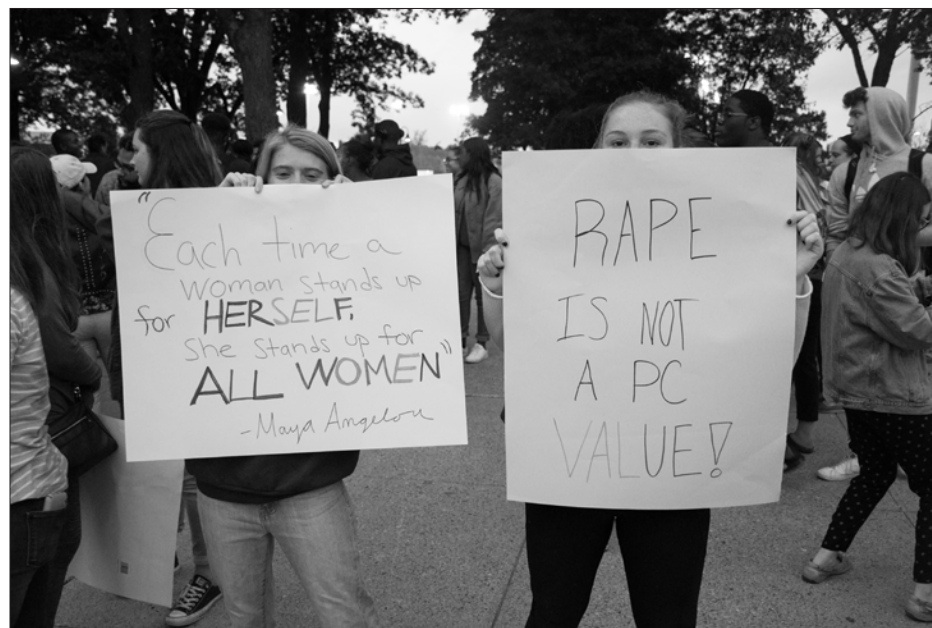 "Each time a
woman stands up
for HERSELF,
she stands up for
ALL WOMEN"
-Maya Angelou
RAPE
IS NOT
A PC
VALUE!